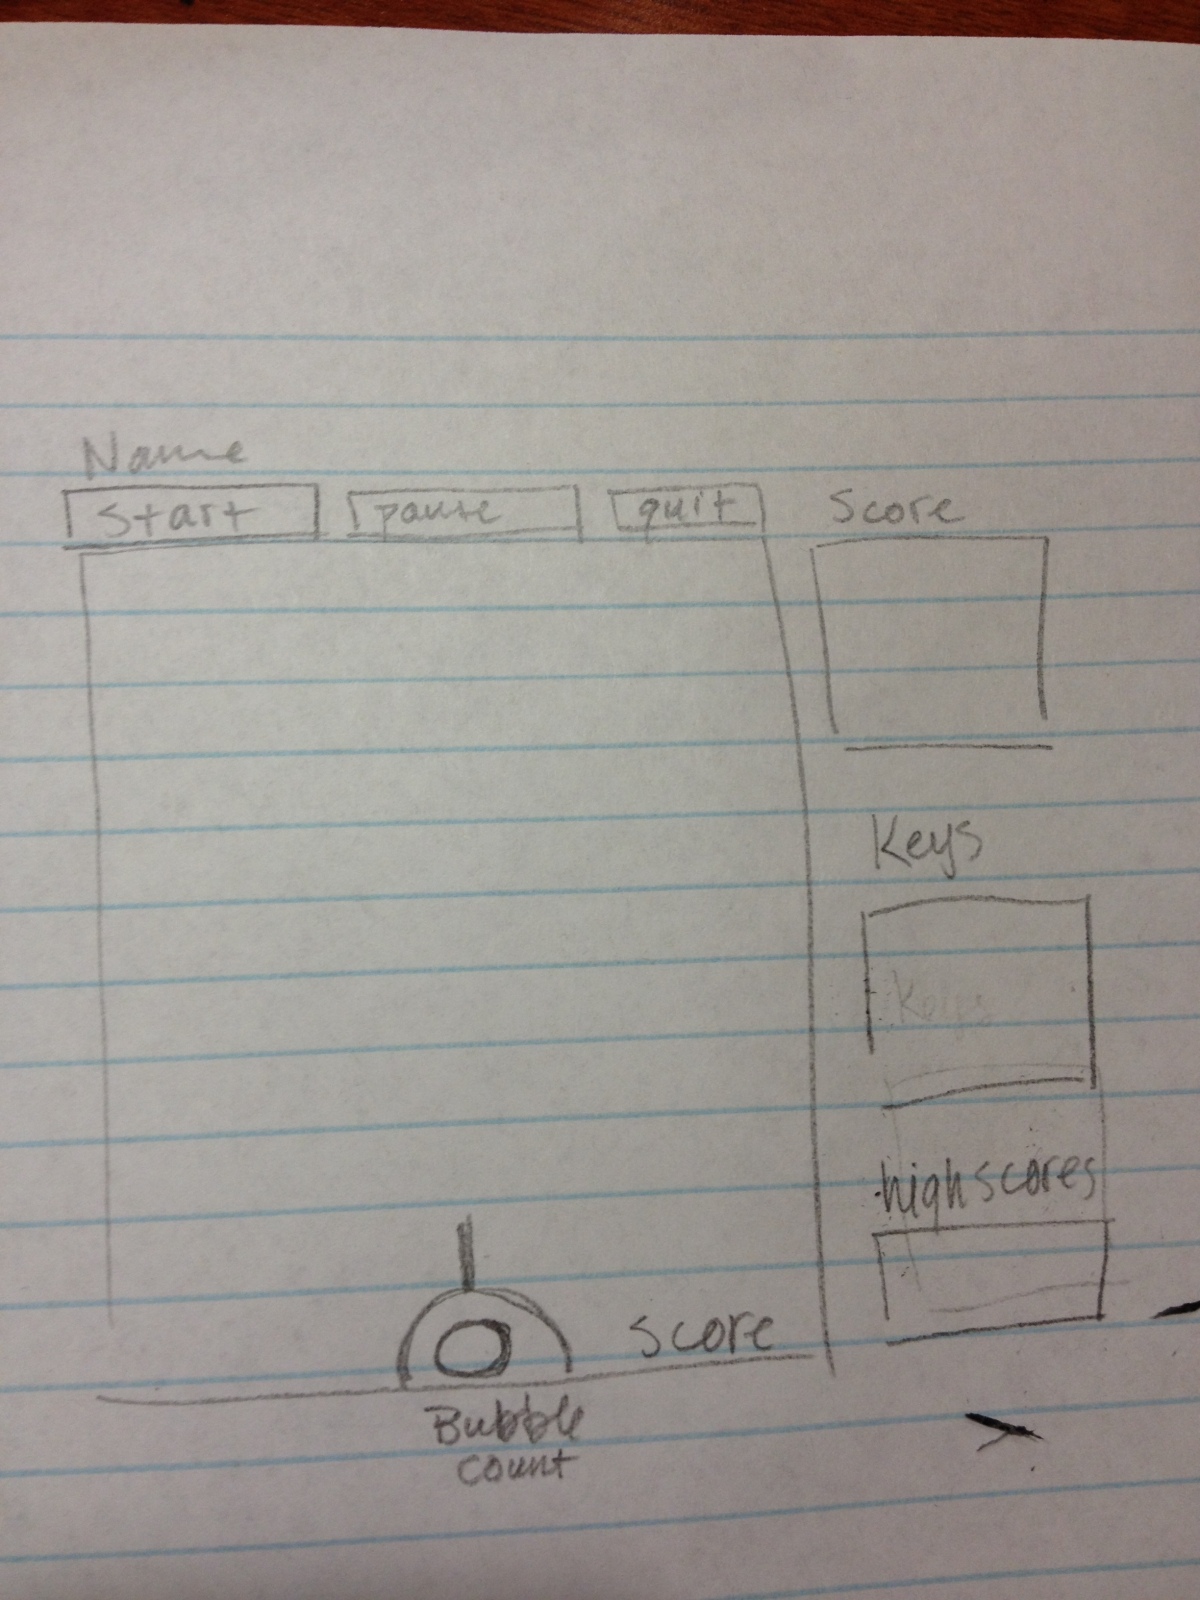 Name
Start pause quit Score
Keys
Keys
highscores
Score
Bubble
count